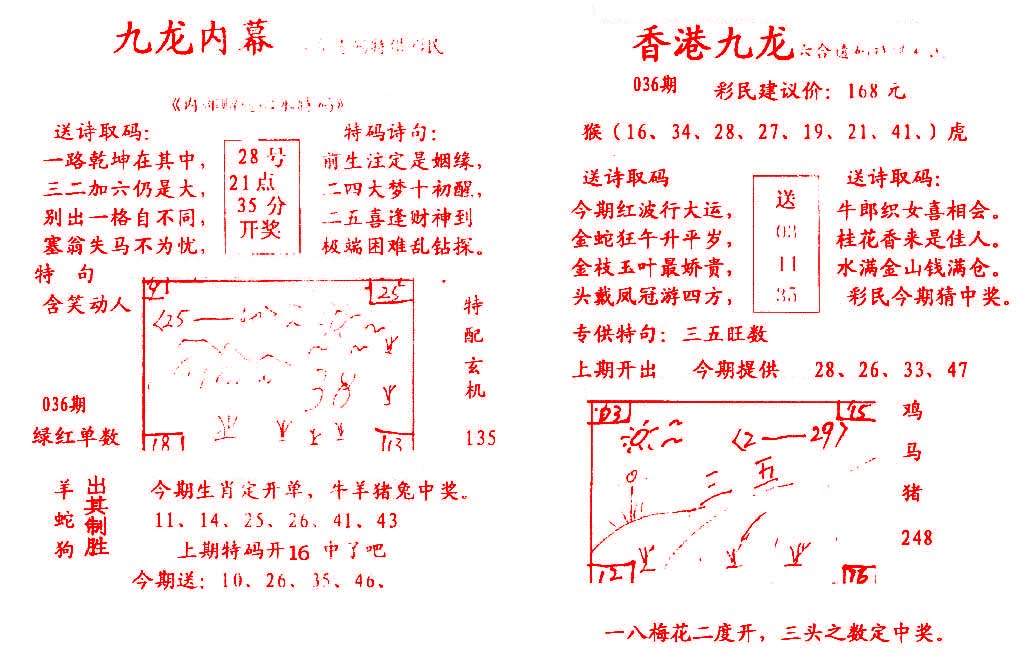 九龙内幕
送诗取码:
一路乾坤在其中,
三二加六仍是大,
别出一格自不同,
塞翁失马不为忧,
28号
21点
35分
开奖
特码诗句:
前生注定是姻缘,
二四大梦十初醒,
二五喜逢财神到
极端困难乱钻探。
特 句
含笑动人
036期
绿红单数
25
〈25——
38
18
113
特配玄机
135
羊
蛇
狗
出其制胜
今期生肖定开单, 牛羊猪兔中奖。
11、14、25、26、41、43
上期特码开16 中了吧
今期送: 10、26、35、46、
香港九龙
036期 彩民建议价: 168元
猴(16、34、28、27、19、21、41、)虎
送诗取码
今期红波行大运,
金蛇狂午升平岁,
金枝玉叶最娇贵,
头戴凤冠游四方,
送
03
11
35
送诗取码:
牛郎织女喜相会。
桂花香来是佳人。
水满金山钱满仓。
彩民今期猜中奖。
专供特句: 三五旺数
上期开出 今期提供 28、26、33、47
03
15
〈2——29〉
三 五
12
16
鸡
马
猪
248
一八梅花二度开, 三头之数定中奖。